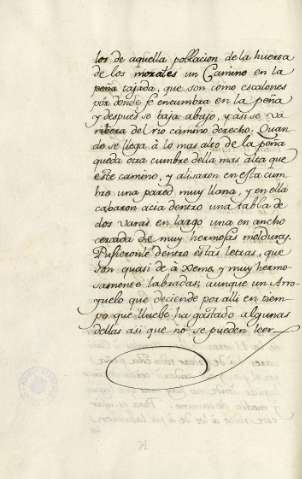 los de aquella poblacion de la huerta
de los morales un Camino en la
peña tajada, que son como escalones
por donde se encumbra en la peña
y despues se baja abajo, y asi se vá
ribera del rio camino derecho. Quan
do se llega à lo mas alto de la peña
queda otra cumbre della mas alta que
este camino, y alisaron en esta cum
bre una pared muy llana, y en ella
cabaron acia dentro una tabla de
dos varas en largo una en ancho
cercada de muy hermosas molduras.
Pusieronle dentro estas letras, que
son quasi de à xeme, y muy hermo
samente labradas, aunque un Arro
yuelo que deciende por alli en tiem
po que llueve ha gastado algunas
dellas asi que no se pueden leer.